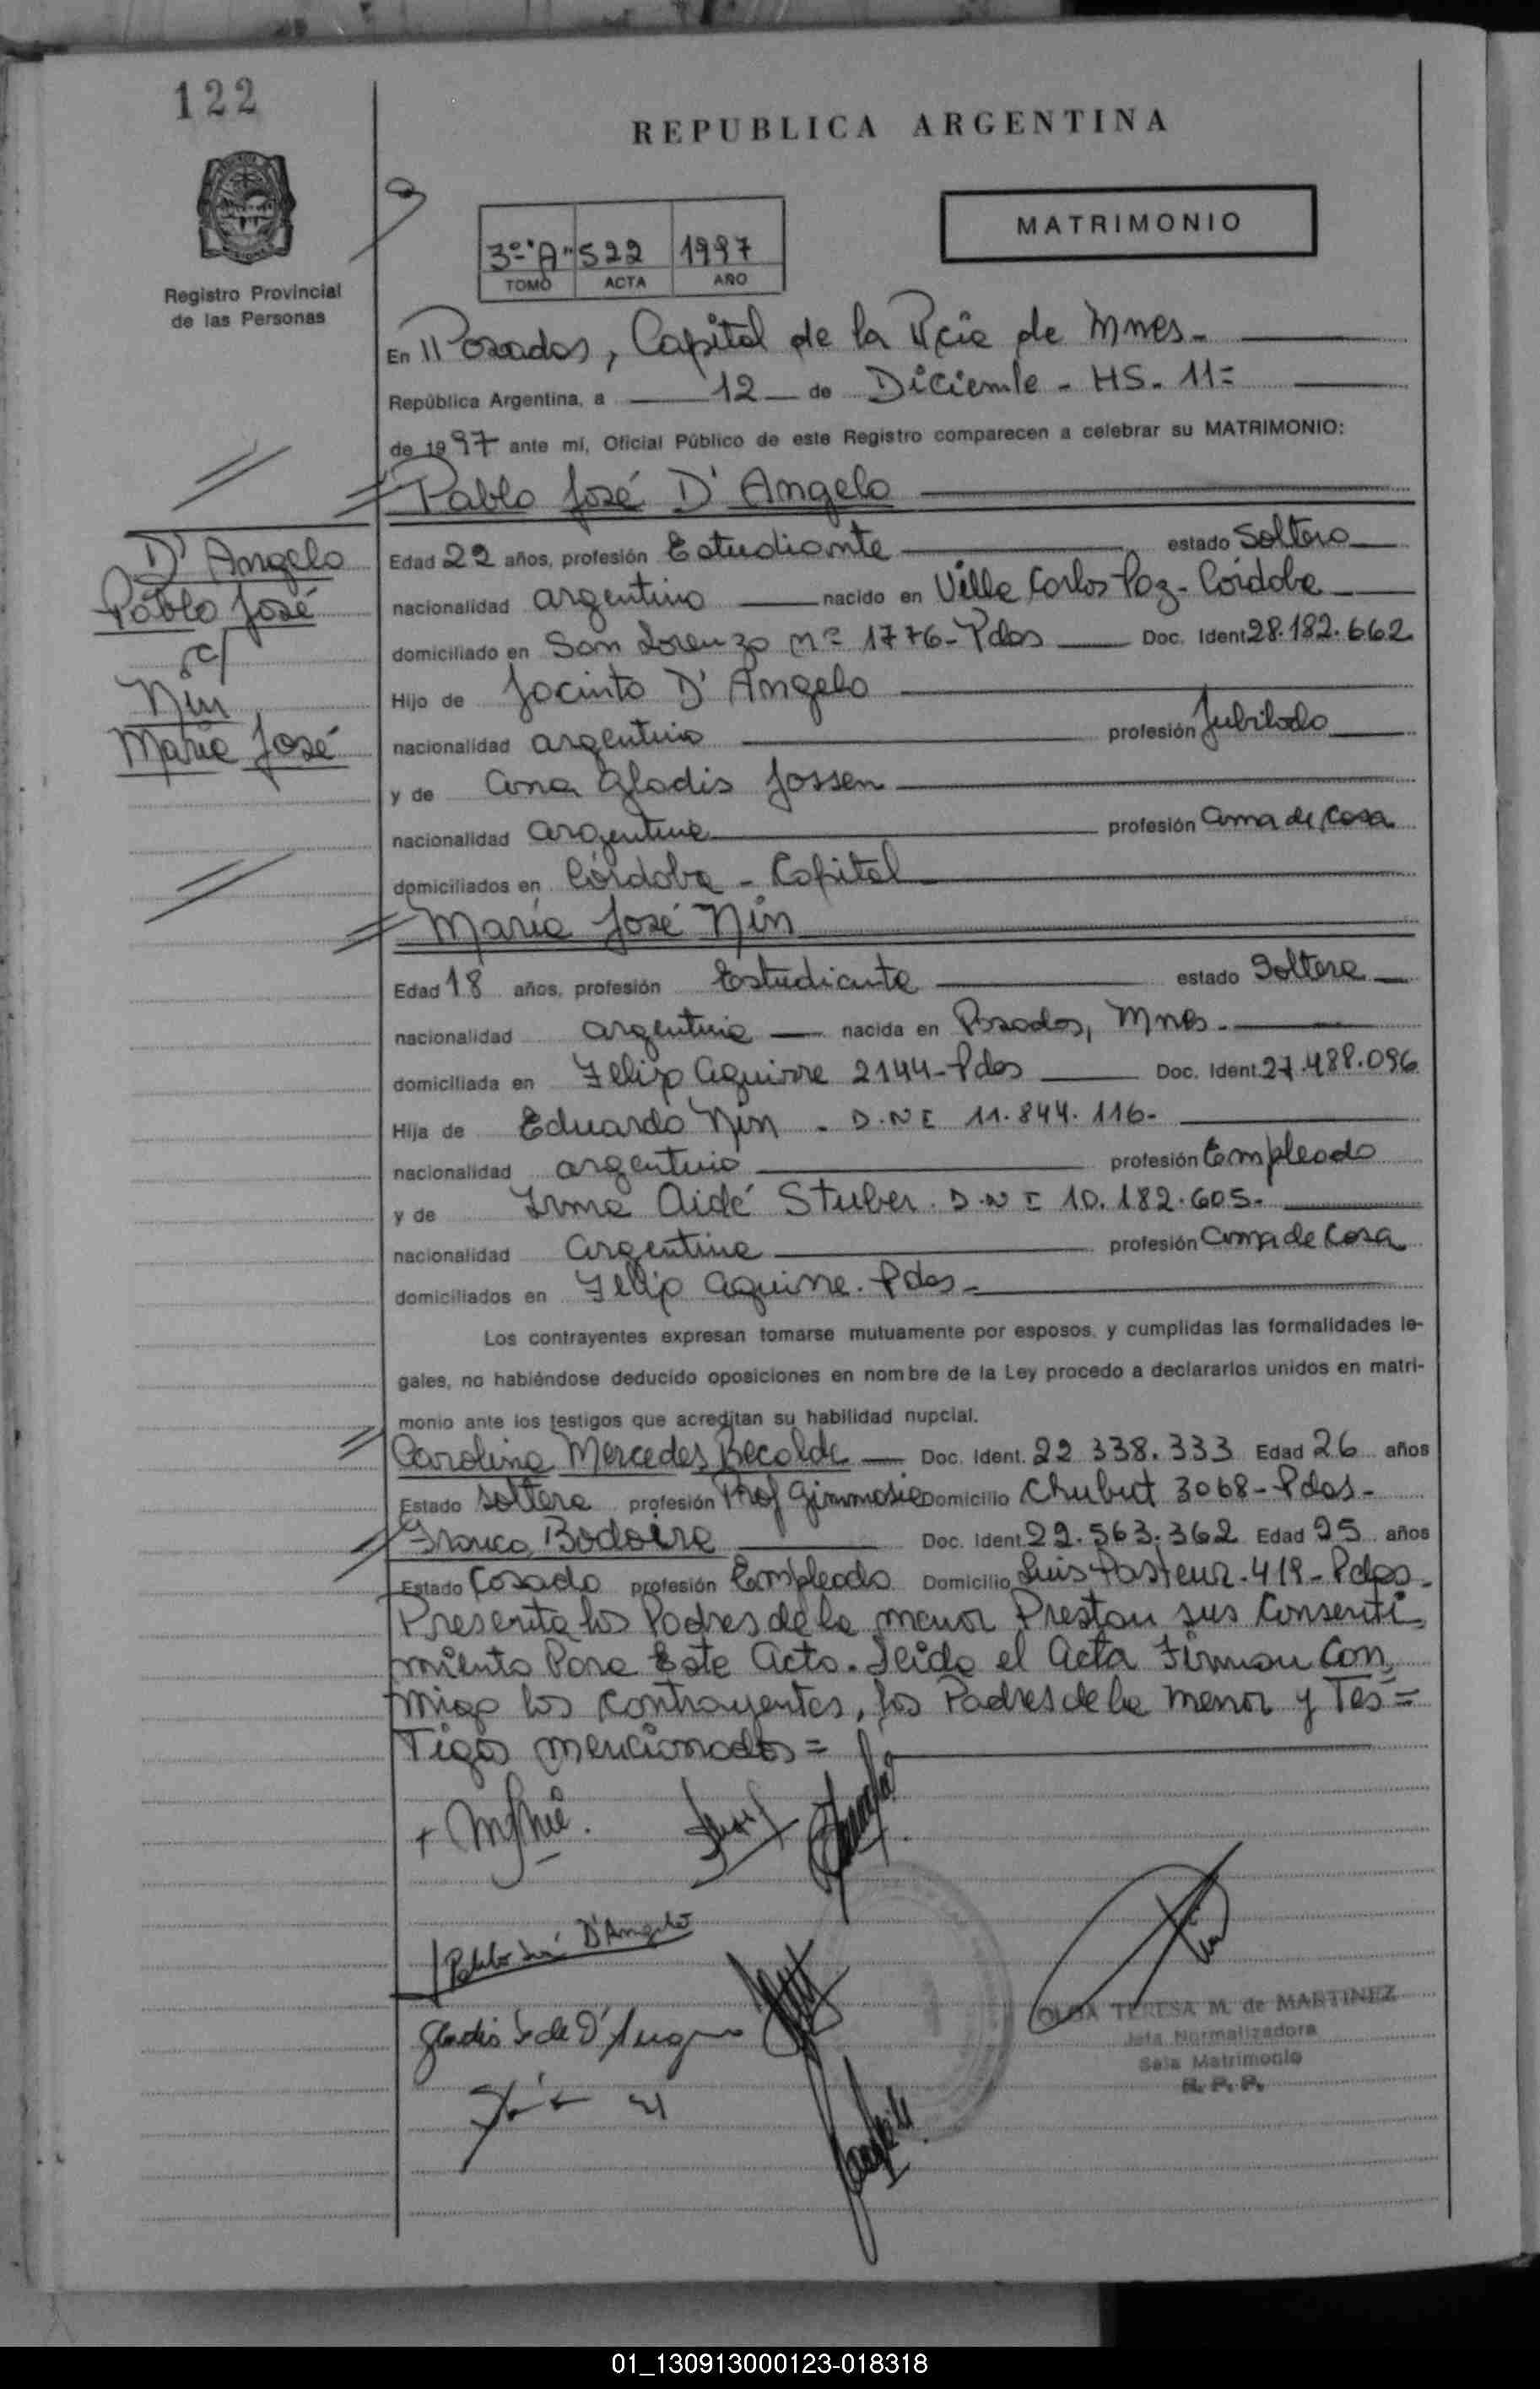 122
REPUBLICA ARGENTINA
MATRIMONIO
3º "A" 522 1997
TOMO ACTA AÑO
Registro Provincial
de las Personas
En Posadas, Capital de la Pcia de Mnes-
República Argentina, a 12 de Diciembre - HS. 11=
de 1997 ante mí, Oficial Público de este Registro comparecen a celebrar su MATRIMONIO:
Pablo José D' Angelo
D' Angelo
Pablo José
c/
Nin
María José
Edad 22 años, profesión Estudiante estado Soltero
nacionalidad argentino nacido en Villa Carlos Paz - Córdoba
domiciliado en San Lorenzo Nº 1776 - Pdas Doc. Ident 28.182.662
Hijo de Jacinto D' Angelo
nacionalidad argentino profesión Jubilado
y de Ana Gladis Jossen
nacionalidad argentina profesión ama de casa
domiciliados en Córdoba - Capital
María José Nin
Edad 18 años, profesión Estudiante estado Soltera
nacionalidad argentina nacida en Posadas, Mnes.
domiciliada en Felix Aguirre 2144 - Pdas Doc. Ident. 27.488.096
Hija de Eduardo Nin - D.N I 11.844.116-
nacionalidad argentino profesión Empleado
y de Irma Aidé Stuber. D.N I 10.182.605-
nacionalidad argentina profesión ama de casa
domiciliados en Felix Aguirre. Pdas-
Los contrayentes expresan tomarse mutuamente por esposos, y cumplidas las formalidades le-
gales, no habiéndose deducido oposiciones en nombre de la Ley procedo a declararlos unidos en matri-
monio ante los testigos que acreditan su habilidad nupcial.
Carolina Mercedes Recalde Doc. Ident. 22 338.333 Edad 26 años
Estado Soltera profesión Prof Gimnasia Domicilio Chubut 3068 - Pdas-
Franco Bodoira Doc. Ident 22.563.362 Edad 25 años
Estado Casado profesión Empleado Domicilio Luis Pasteur - 419 - Pdas-
Presente los Padres de la menor Prestan sus Consenti-
miento Para Este Acto. Leida el Acta Firman Con
migo los contrayentes, los Padres de la menor y Tes=
Tigos mencionados=
Pablo José D'Angelo
Gladis J de D'Angelo
OLGA TERESA M. de MARTINEZ
Jefa Normalizadora
Sala Matrimonio
R. P. P.
01_130913000123-018318